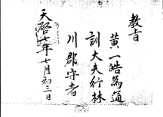 教旨
黃一皓為通
訓大夫行林
川郡守者
天啓七年七月初三日